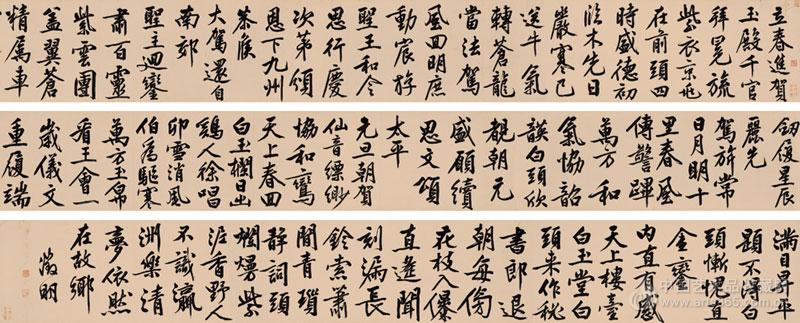 立春進賀
玉殿千官
拜冕旒
紫衣京兆
在前頭四
時盛德初
臨木先日
嚴寒已
送牛氣
轉蒼龍
當法駕
風回明庶
動宸游
聖王和令
思行慶
次第頒
恩下九州
恭候
大駕還自
南郊
聖主迴鑾
肅百靈
紫雲團
蓋翼蒼
精屬車
劒履星辰
麗先
駕旂常
日月明十
里春風
傳警蹕
萬方和
氣協韶
韺白頭欣
覩朝元
盛願續
思文頌
太平
元旦朝賀
仙音縹緲
協和鸞
天上春回
白玉闌日出
鷄人徐唱
卯雪消風
伯為驅寒
萬方玉帛
看王會一
歲儀文
重履端
滿目昇平
題不得白
頭慚愧直
金鑾
內直有感
天上樓臺
白玉堂白
頭來作秘
書郎退
朝每傍
花枝入儤
直遙聞
刻漏長
鈴索蕭
閒青瑣
靜詞頭
爛熳紫
泥香野人
不識瀛
洲樂清
夢依然
在故鄉
徵明